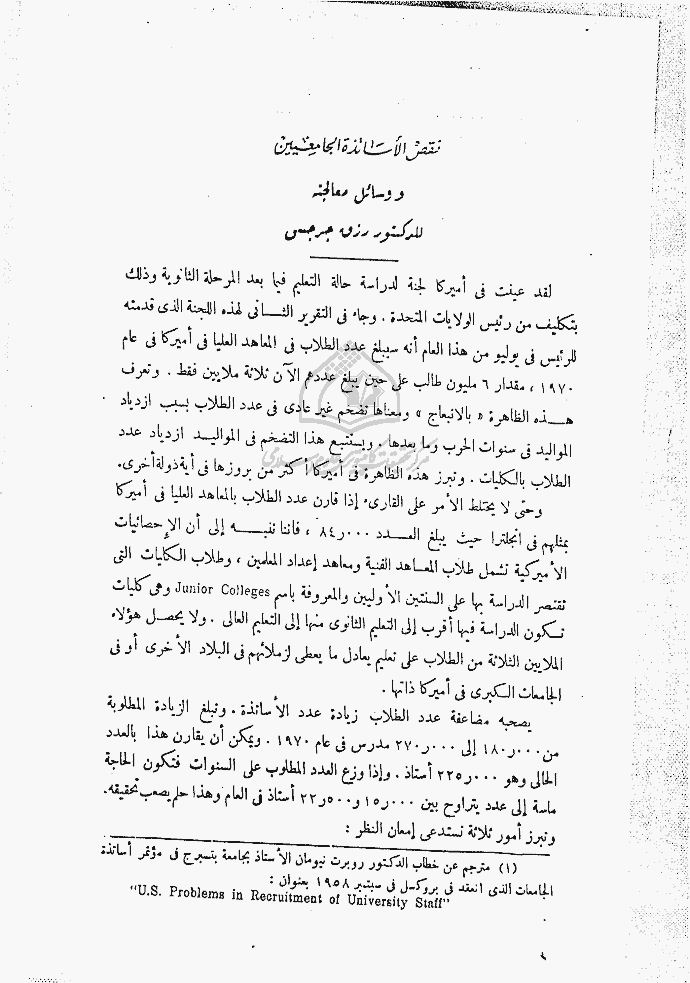 نقص الأساتذة الجامعيين
ووسائل معالجته
للدكتور رزق جرجس
لقد عينت فى أميركا لجنة لدراسة حالة التعليم فيما بعد المرحلة الثانوية وذلك
بتكليف من رئيس الولايات المتحدة . وجاء فى التقرير الثـانى لهذه اللجنة الذى قدمته
للرئيس فى يوليو من هذا العام أنه سيبلغ عدد الطلاب فى المعاهد العليا فى أميركا فى عام
١٩٧٠ ، مقدار ٦ مليون طالب على حين يبلغ عددهم الآن ثلاثة ملايين فقط . وتعرف
هـذه الظاهرة « بالانبعاج » ومعناها تضخم غير عادى فى عدد الطلاب بسبب ازدياد
المواليد فى سنوات الحرب وما بعدها . ويستتبع هذا التضخم فى المواليـد ازدياد عدد
الطلاب بالكليات . وتبرز هذه الظاهرة فى أميركا أكثر من بروزها فى أية دولة أخرى.
وحتى لا يختلط الأمر على القارىء إذا قارن عدد الطلاب بالمعاهد العليا فى أميركا
بمثلهم فى انجلترا حيث يبلغ العـدد ٨٤٫٠٠٠ ، فاننا ننبـه إلى أن الإحصائيات
الأميركية تشمل طلاب المعـاهد الفنية ومعاهد إعداد المعلمين ، وطلاب الكليات التى
تقتصر الدراسة بها على السنتين الأوليين والمعروفة باسم Junior Colleges وهى كليات
تكون الدراسة فيها أقرب إلى التعليم الثانوى منها إلى التعليم العالى . ولا يحصل هؤلاء
الملايين الثلاثة من الطلاب على تعليم يعادل ما يعطى لزملائهم فى البلاد الأخرى أو فى
الجامعات الكبرى فى أميركا ذاتها .
يصحبه مضاعفة عدد الطلاب زيادة عدد الأساتذة . وتبلغ الزيادة المطلوبة
من ١٨٠٫٠٠٠ إلى ٢٧٠٫٠٠٠ مدرس فى عام ١٩٧٠ . ويمكن أن يقارن هذا بالعدد
الحالى وهو ٢٢٥٫٠٠٠ أستاذ . وإذا وزع العدد المطلوب على السنوات فتكون الحاجة
ماسة إلى عدد يتراوح بين ١٥٫٠٠٠ و٢٢٫٥٠٠ أستاذ فى العام وهذا حلم يصعب تحقيقه.
وتبرز أمور ثلاثة تستدعى إمعان النظر :
(١) مترجم عن خطاب الدكتور روبرت نيومان الأستاذ بجامعة بتسبرج فى مؤتمر أساتذة
الجامعات الذى انعقد فى بروكسل فى سبتمبر ١٩٥٨ بعنوان :
"U.S. Problems in Recruitment of University Staff"